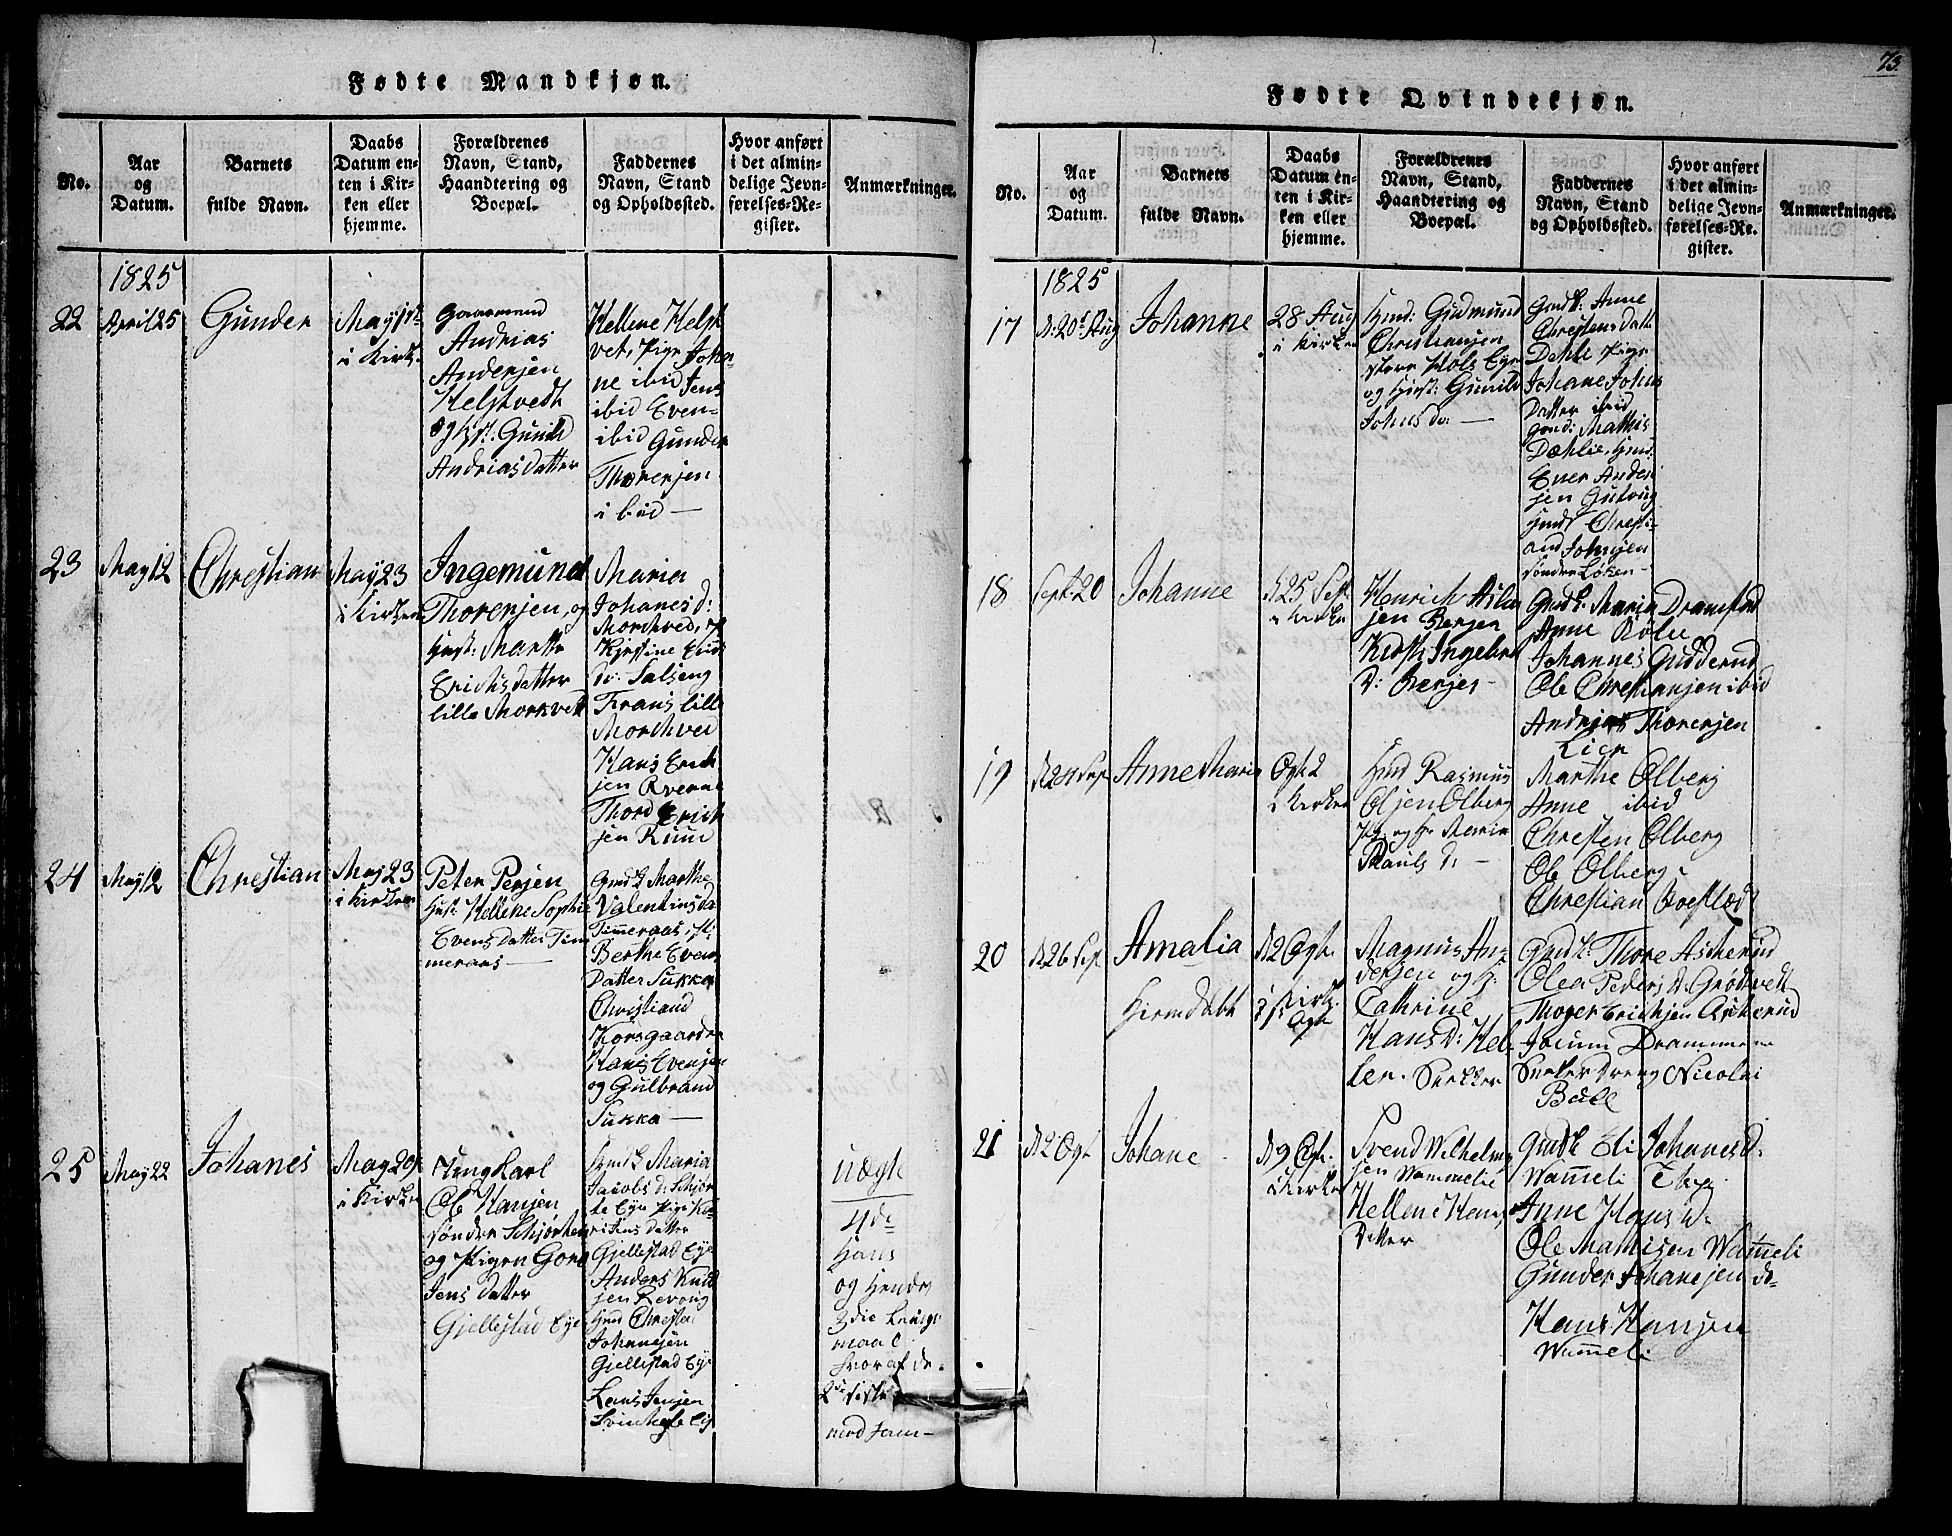 Fødte Mandkjøn.
No.
Aar
og
Datum.
Barnets
fulde Navn.
Daabs
Datum en-
ten i Kir-
ken eller
hjemme.
Forældrenes
Navn, Stand,
Haandtering og
Boepæl.
Faddernes
Navn, Stand
og Opholdssted.
Hvor anført
i det almin-
delige Jevn-
førelses-Re-
gister.
Anmærkninger.
1825
22
April 25
Gunder
May 1st
i Kirk.
Andrias
Andersen
Helgtvedt
og Gunild
Andriasdatter
Hellene Helgt
vet, Pige Johan-
ne ibid Jens
ibid Even-
ibid Gunder
Thoresen
ibid —
23
May 12
Christian
May 23
i Kirken
Ingemund
Thoresen, og
Hust: Marthe
Erichsdatter
lille Morkvedt
Maria
Johanesd:
Morchved,
Kjestine Erichs
do: Salseng
Frans lille
Morchved
Hans Erich
sen
Thord Erich
sen Ruud
24
May 12
Christian
May 23
i Kirken
Peter Persen
Hust: Hellene Sophie
Evensdatter Tim
meraas —
Gmdk Marthe
Valentinsda
Timmeraas,
Berthe Evens
Datter Sukka
Christiand
Korsgaarden
Hans Evensen
og Gulbrand
Sukka —
25
May 22
Johanes
May 29
i Kirken
Ungkarl
Ole Hansen
søndre Schjørten
og Pigen Gore
Jens datter
Gjellestad Eje
Gmdk Maria
Jacobs d: Schjør
te Eye Pige Ka-
ri Jens datter
Gjellestad Eye
Anders Knud
sen Revoug
Gmd Christen
Johansen
Gjellestad Eye
Lars Jensen
uægte
4de
Hans
og Hendes
3die Leiers
maal
hvoraf de
2de sidste
med ham —
73.
Fødte Qvindekjøn.
No.
Aar
og
Datum.
Barnets
fulde Navn.
Daabs
Datum en-
ten i Kir-
ken eller
hjemme.
Forældrenes
Navn, Stand,
Haandtering og
Boepæl.
Faddernes
Navn, Stand
og Opholdssted.
Hvor anført
i det almin-
delige Jevn-
førelses-Re-
gister.
Anmærkninger.
1825
17
d: 20de Aug
Johanne
28 Aug
i Kirken
Hmd: Gudmund
Christiansen
store Hols Eye
og Hust: Gunild
Johnsdo: —
Gmdk: Anne
Christensdatt
Dæhli Pige
Johane Johns
Datter ibid
Gmd: Mathis
Dæhlie, Hmd.
Ener Ander
sen Gutvig
Christi-
and Johnsen
søndre Løken —
18
Sept: 20
Johanne
d 25 Sept
i Kirke
Henrich Asla
sen Berger
Ingebor
D: Berger —
Gmdk: Maria Dramstad
Anne Bolie
Johannes Gudderud
Ole Christiansen ibid
Andrias Thoresen
Lier
19
d 24 Sept
Anne Maria
Ogt 2
i Kirken
Hmd Rasmus
Olsen Olberg
og H. Maria
Pauls D: —
Marthe Olberg
Anne ibid
Christen Olberg
Ole Olberg
Christian
20
d 26 Sept
Amalia
Hjemdøbt
d 2 Ogt.
i Kirk.
1st Ogt
Magnus An-
dersen og H:
Cathrine
Hans D: Hel
ler. Snekker
Gmdk: Thore Ascherud
Olea Peders D: Grødtvedt
Thoger Erichsen Askerud
Jocum Drammen
Snekerdreng Nicolai
Bull
21
d 2 Ogt
Johane
d 9 Ogt.
i Kirke
Svend Wilhelm
sen Wammeli
Hellene Hans
Datter
Gmdk Eli Johanes d:
Wammeli
Anne Hans d:
Ole Mathisen Wammeli
Gunder Johanesen do-
Hans Hansen
Wammeli